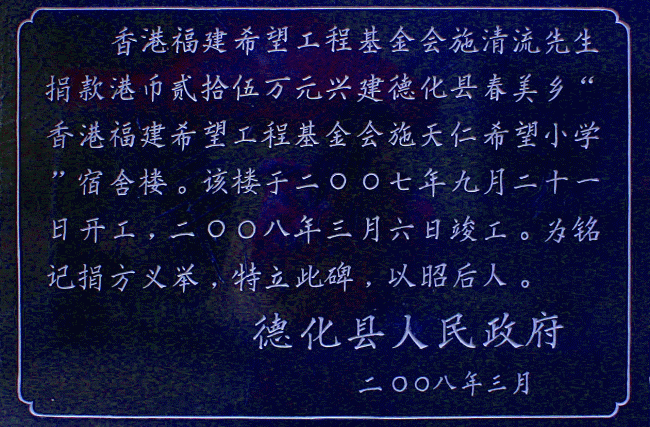 香港福建希望工程基金会施清流先生
捐款港币贰拾伍万元兴建德化县春美乡“
香港福建希望工程基金会施天仁希望小学
”宿舍楼。该楼于二〇〇七年九月二十一
日开工，二〇〇八年三月六日竣工。为铭
记捐方义举，特立此碑，以昭后人。
德化县人民政府
二〇〇八年三月